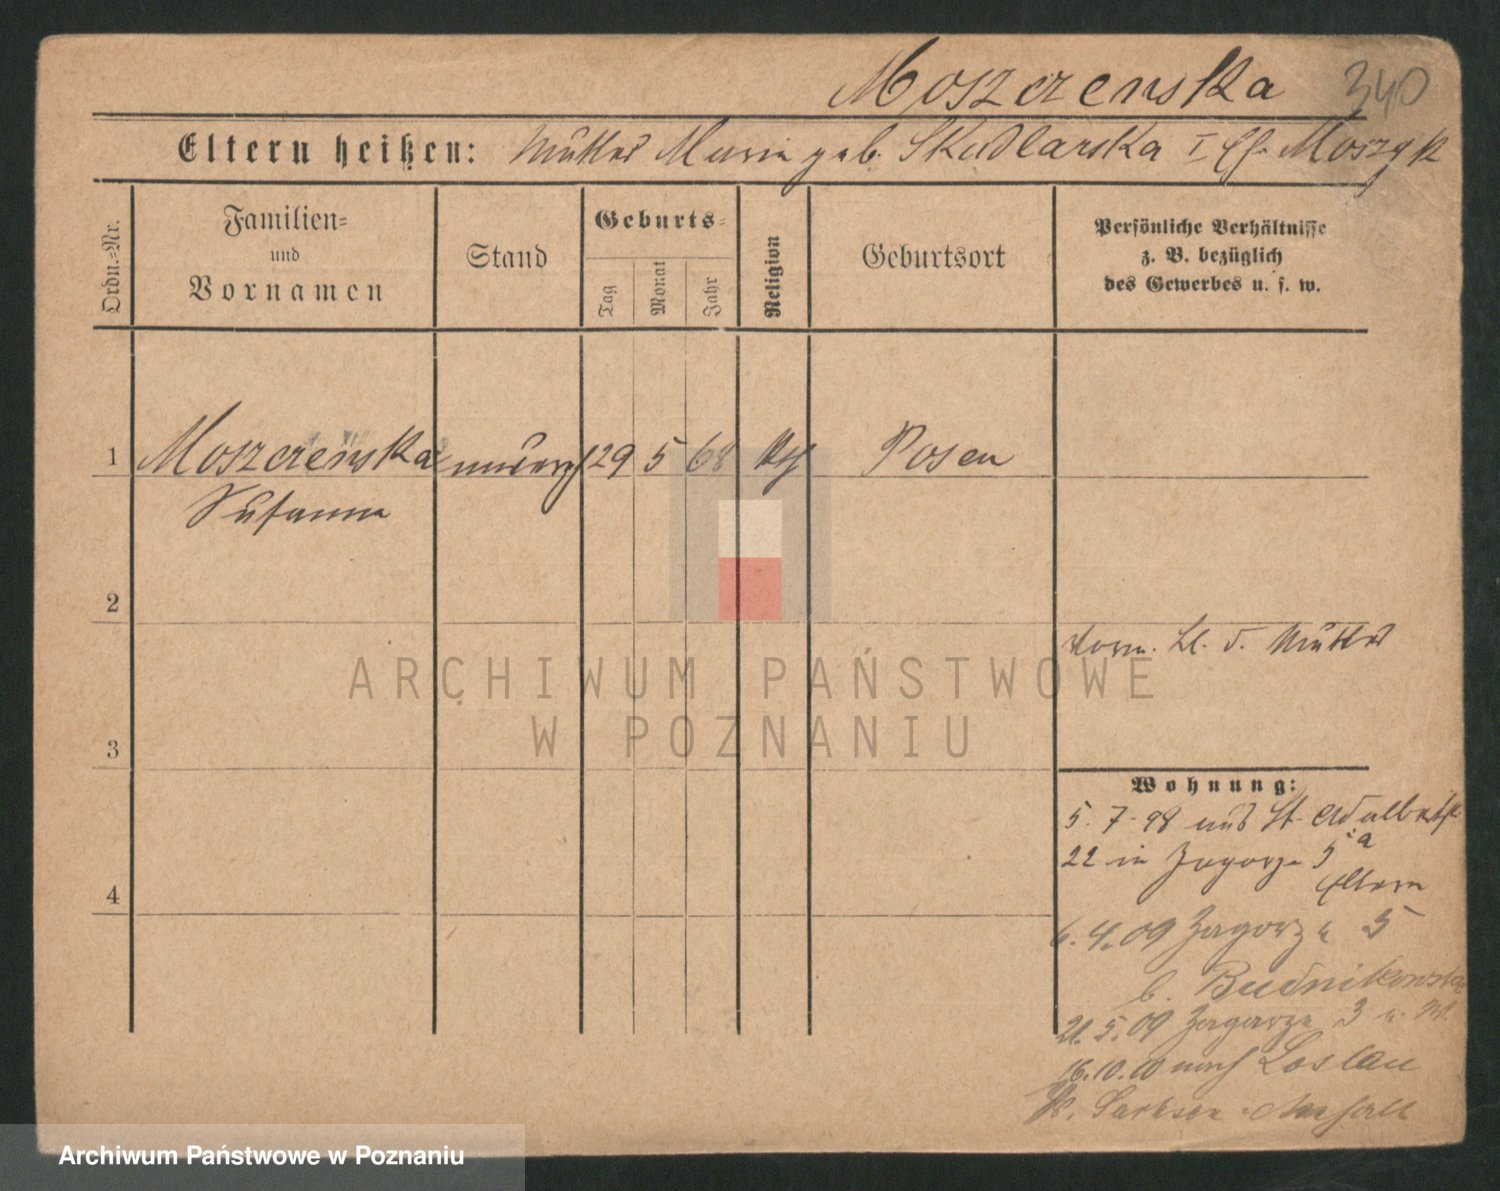 Moszczenska 340
Eltern heißen: Mutter Maria geb. Skudlarska I Eh. Moszyk
Ordn.-Nr.
Familien-
und
Vornamen
Stand
Geburts-
Tag
Monat
Jahr
Religion
Geburtsort
Persönliche Verhältnisse
z. B. bezüglich
des Gewerbes u. s. w.
1 Moszczenska unverh 29 5 68 kth Posen
Susanna
2
vorm. Bl. d. Mutter
ARCHIWUM PAŃSTWOWE
W POZNANIU
3
Wohnung:
5. 7. 98 aus St. Adalbertstr.
22 in Zagorze 5
a
Eltern
4
6. 4. 09 Zagorze 5
b. Budnikowska
21. 5. 09 Zagorze 3
16. 10. nach Loslau
Sachsen-Anhalt
Archiwum Państwowe w Poznaniu